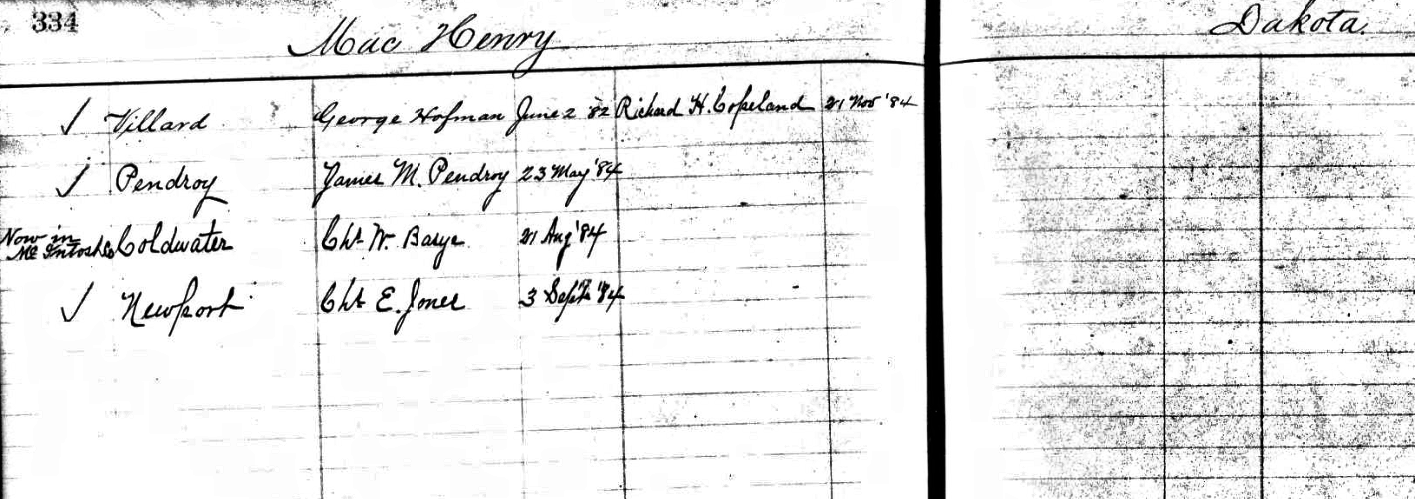 334
Mac Henry
Dakota.
✓ Villard George Hofman June 2 '82 Richard H. Copeland 21 Nov '84
✓ Pendroy James M. Pendroy 23 May '84
Now in
Mc Intosh Co Coldwater Chs W. Basye 21 Aug '84
✓ Newport Chs E. Jones 3 Sept '84